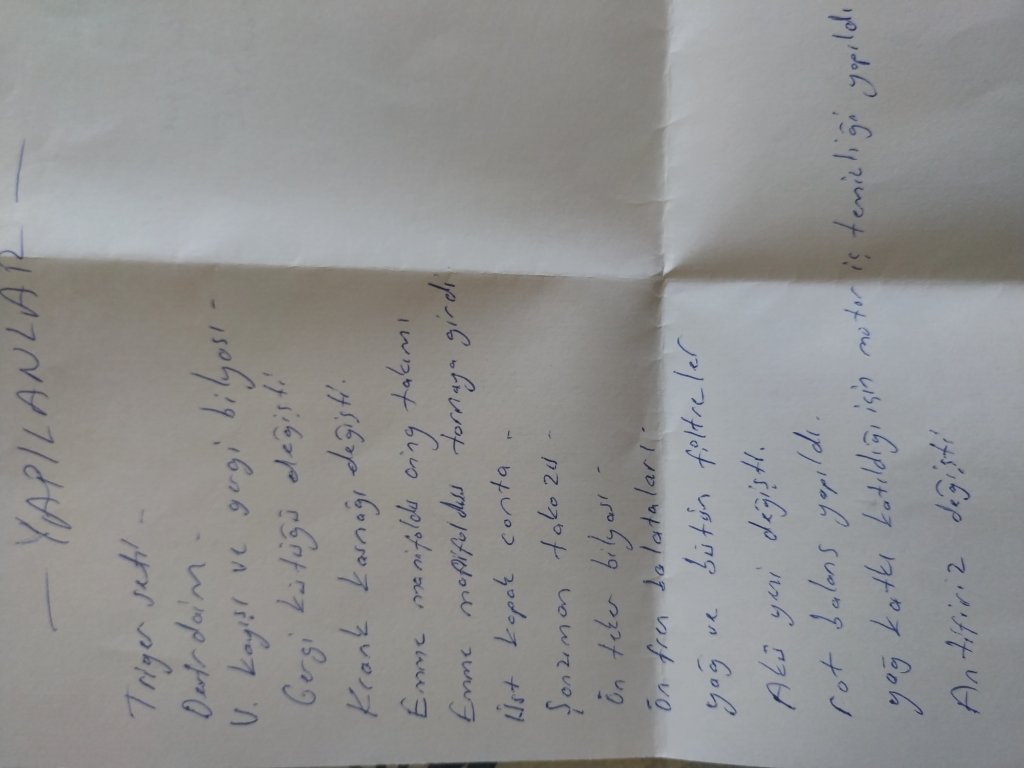 — YAPILANLAR —
Triger seti -
Devirdaim -
V. kayışı ve gergi bilyası -
Gergi kütüğü değişti
Krank kasnağı değişti.
Emme manifoldu oring takımı
Emme manifoldu tornaya girdi
üst kapak conta -
Şanzıman takozu -
Ön teker bilyası -
Ön fren balataları
yağ ve bütün filtreler
Akü yeni değişti.
rot balans yapıldı.
yağ katkı katıldığı için motor iç temizliği yapıldı
Antifiriz değişti